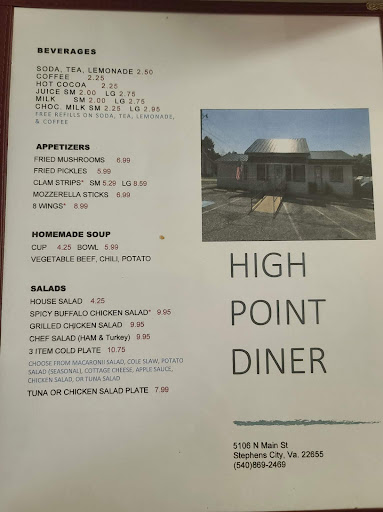 BEVERAGES
SODA, TEA, LEMONADE 2.50
COFFEE 2.25
HOT COCOA 2.25
JUICE SM 2.00 LG 2.75
MILK SM 2.00 LG 2.75
CHOC. MILK SM 2.25 LG 2.95
FREE REFILLS ON SODA, TEA, LEMONADE,
& COFFEE
APPETIZERS
FRIED MUSHROOMS 6.99
FRIED PICKLES 5.99
CLAM STRIPS* SM 5.29 LG 8.59
MOZZERELLA STICKS 6.99
8 WINGS* 8.99
HOMEMADE SOUP
CUP 4.25 BOWL 5.99
VEGETABLE BEEF, CHILI, POTATO
SALADS
HOUSE SALAD 4.25
SPICY BUFFALO CHICKEN SALAD* 9.95
GRILLED CHICKEN SALAD 9.95
CHEF SALAD (HAM & Turkey) 9.95
3 ITEM COLD PLATE 10.75
CHOOSE FROM MACARONII SALAD, COLE SLAW, POTATO
SALAD (SEASONAL), COTTAGE CHEESE, APPLE SAUCE,
CHICKEN SALAD, OR TUNA SALAD
TUNA OR CHICKEN SALAD PLATE 7.99
HIGH
POINT
DINER
5106 N Main St
Stephens City, Va. 22655
(540)869-2469